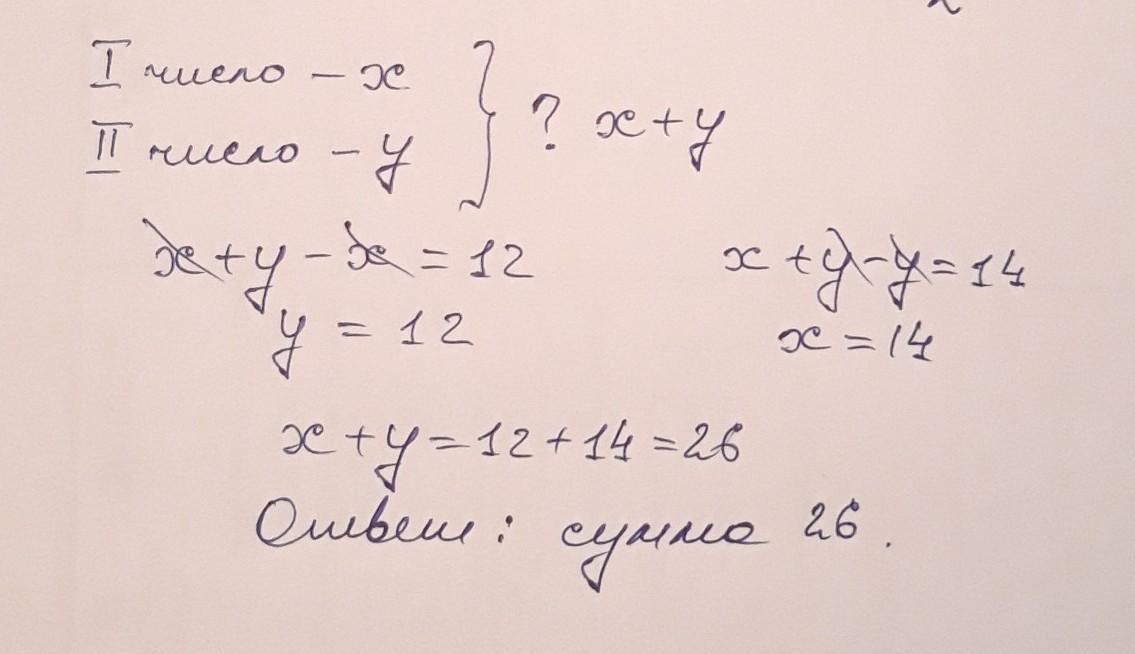 I число – x
II число – y } ? x+y
x+y–x=12 x+y–y=14
y = 12 x=14
x+y=12+14=26
Ответ: сумма 26.